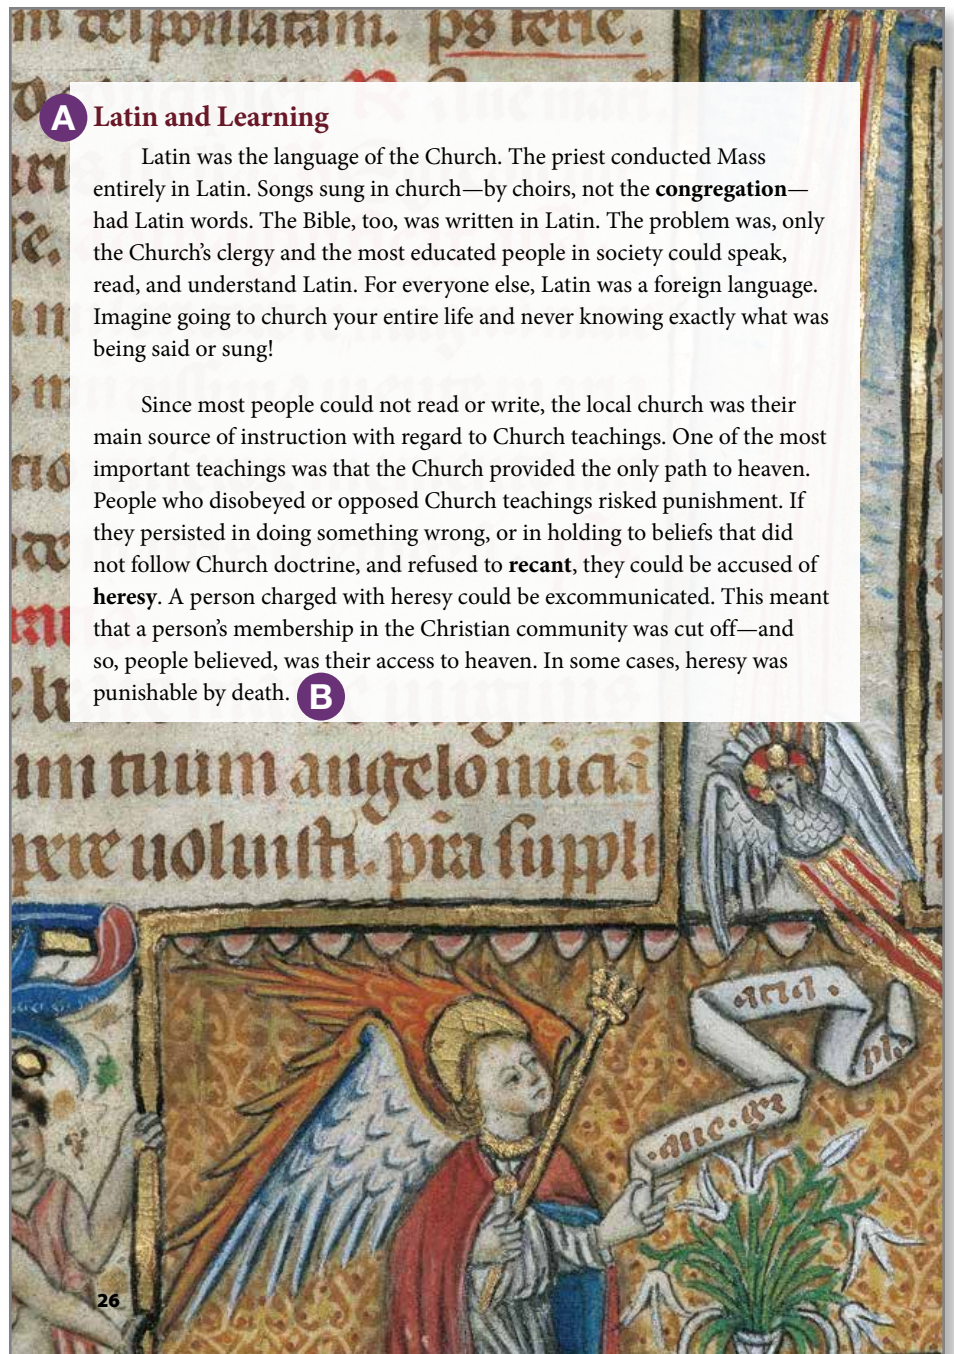 ps terie.
A Latin and Learning
Latin was the language of the Church. The priest conducted Mass
entirely in Latin. Songs sung in church—by choirs, not the congregation—
had Latin words. The Bible, too, was written in Latin. The problem was, only
the Church’s clergy and the most educated people in society could speak,
read, and understand Latin. For everyone else, Latin was a foreign language.
Imagine going to church your entire life and never knowing exactly what was
being said or sung!
Since most people could not read or write, the local church was their
main source of instruction with regard to Church teachings. One of the most
important teachings was that the Church provided the only path to heaven.
People who disobeyed or opposed Church teachings risked punishment. If
they persisted in doing something wrong, or in holding to beliefs that did
not follow Church doctrine, and refused to recant, they could be accused of
heresy. A person charged with heresy could be excommunicated. This meant
that a person’s membership in the Christian community was cut off—and
so, people believed, was their access to heaven. In some cases, heresy was
punishable by death. B
tuum angelo
uoluisti. suppli
26